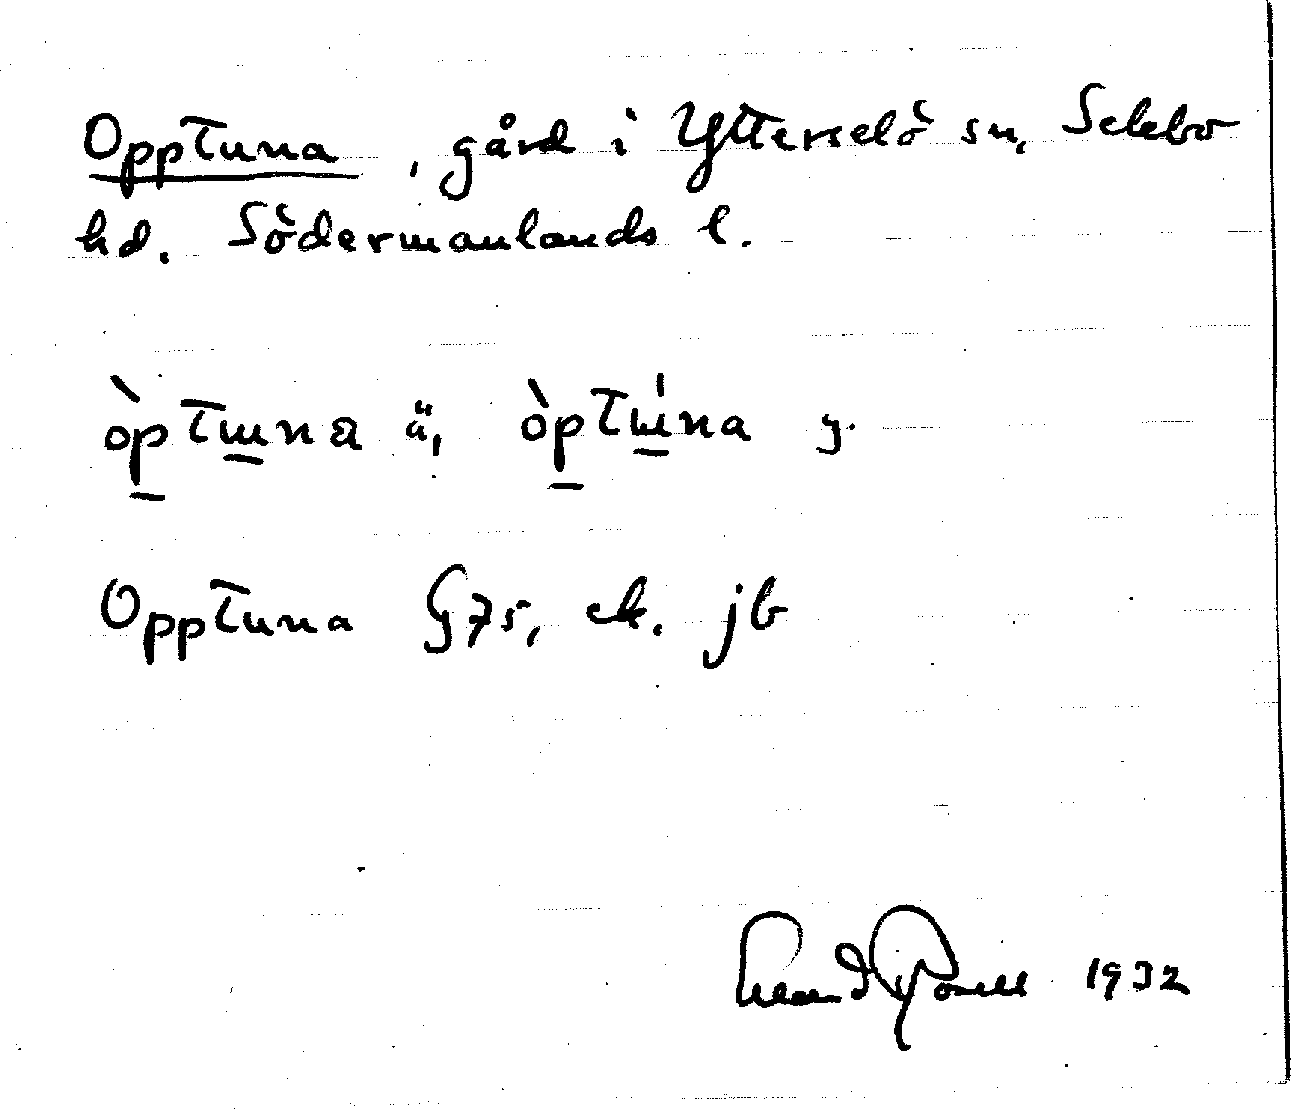 Opptuna, gård i Ytterselö sn, Selebo
hd. Södermanlands l.
òptɯna ä, òptɯ́na y.
Opptuna G 75, ek. jb
1932